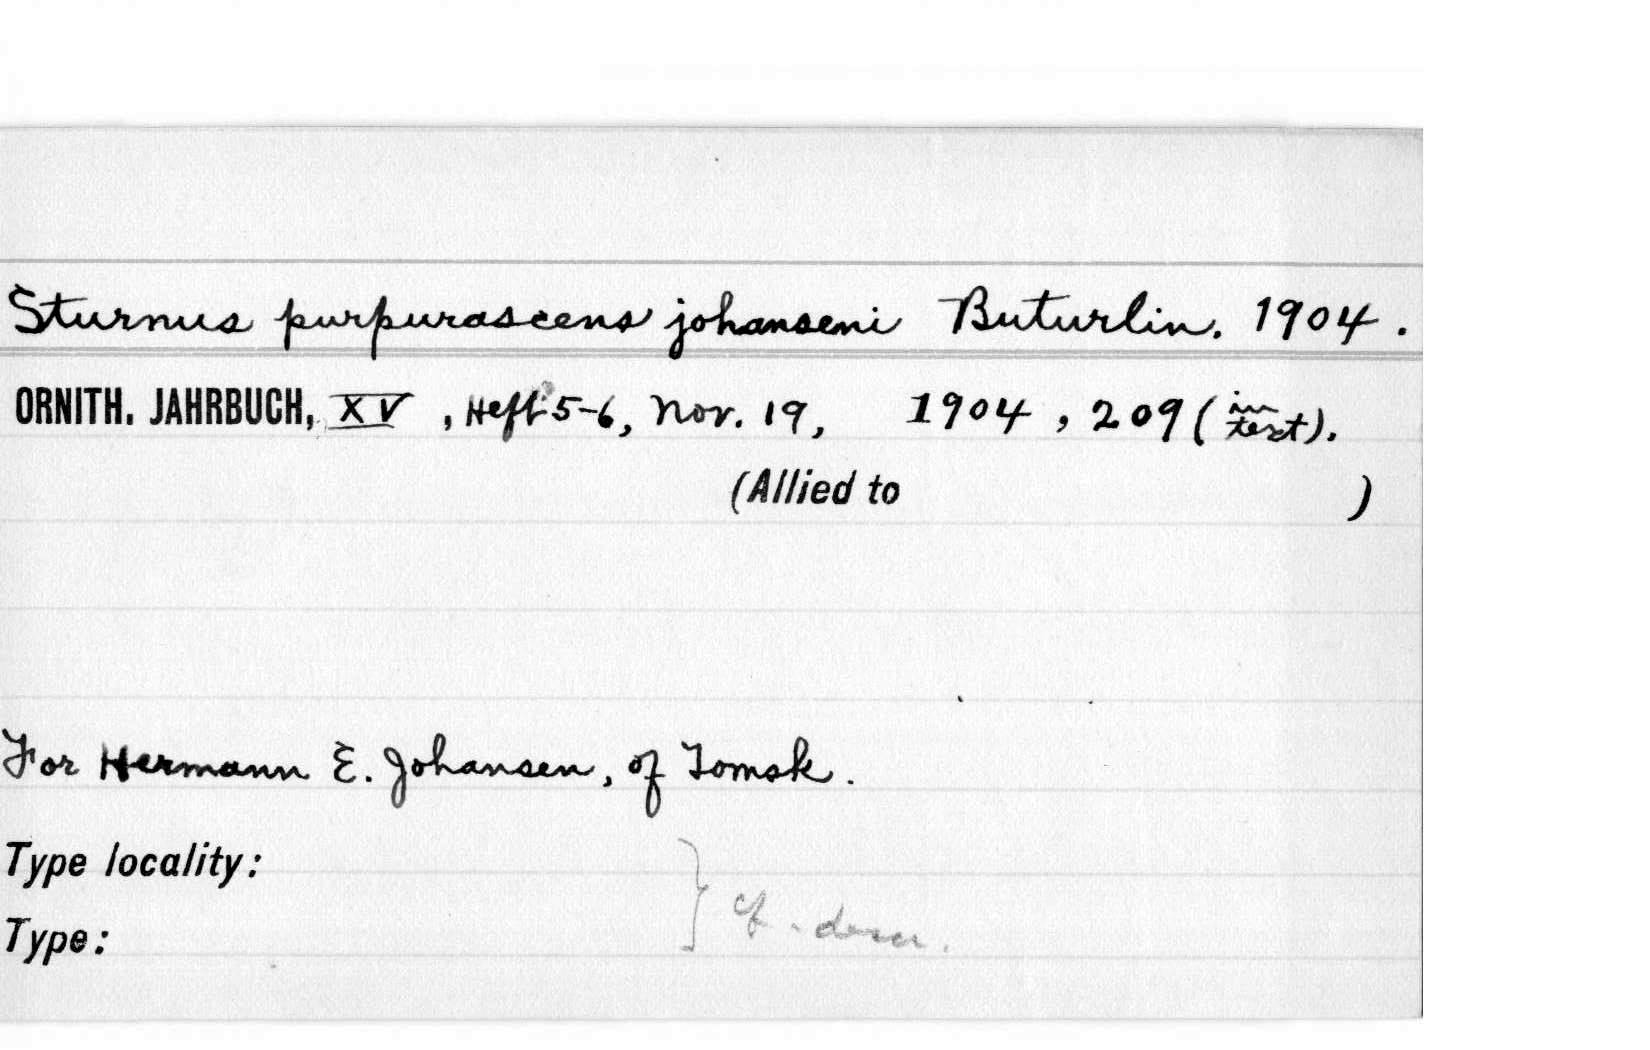 Sturnus purpurascens johanseni Buturlin. 1904.
ORNITH. JAHRBUCH, XV, Heft 5-6, Nov. 19, 1904, 209 (in text).
(Allied to )
For Hermann E. Johansen, of Tomsk.
Type locality:
} cf. descr.
Type: